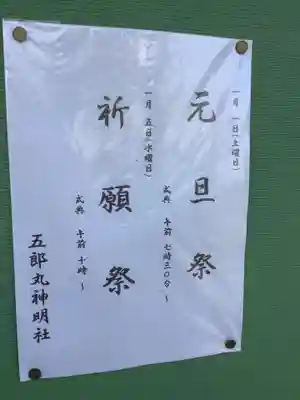 一月 一日(土曜日)
元旦祭
式典 午前 七時三〇分 ~
一月 五日(水曜日)
祈願祭
式典 午前 十時 ~
五郎丸神明社